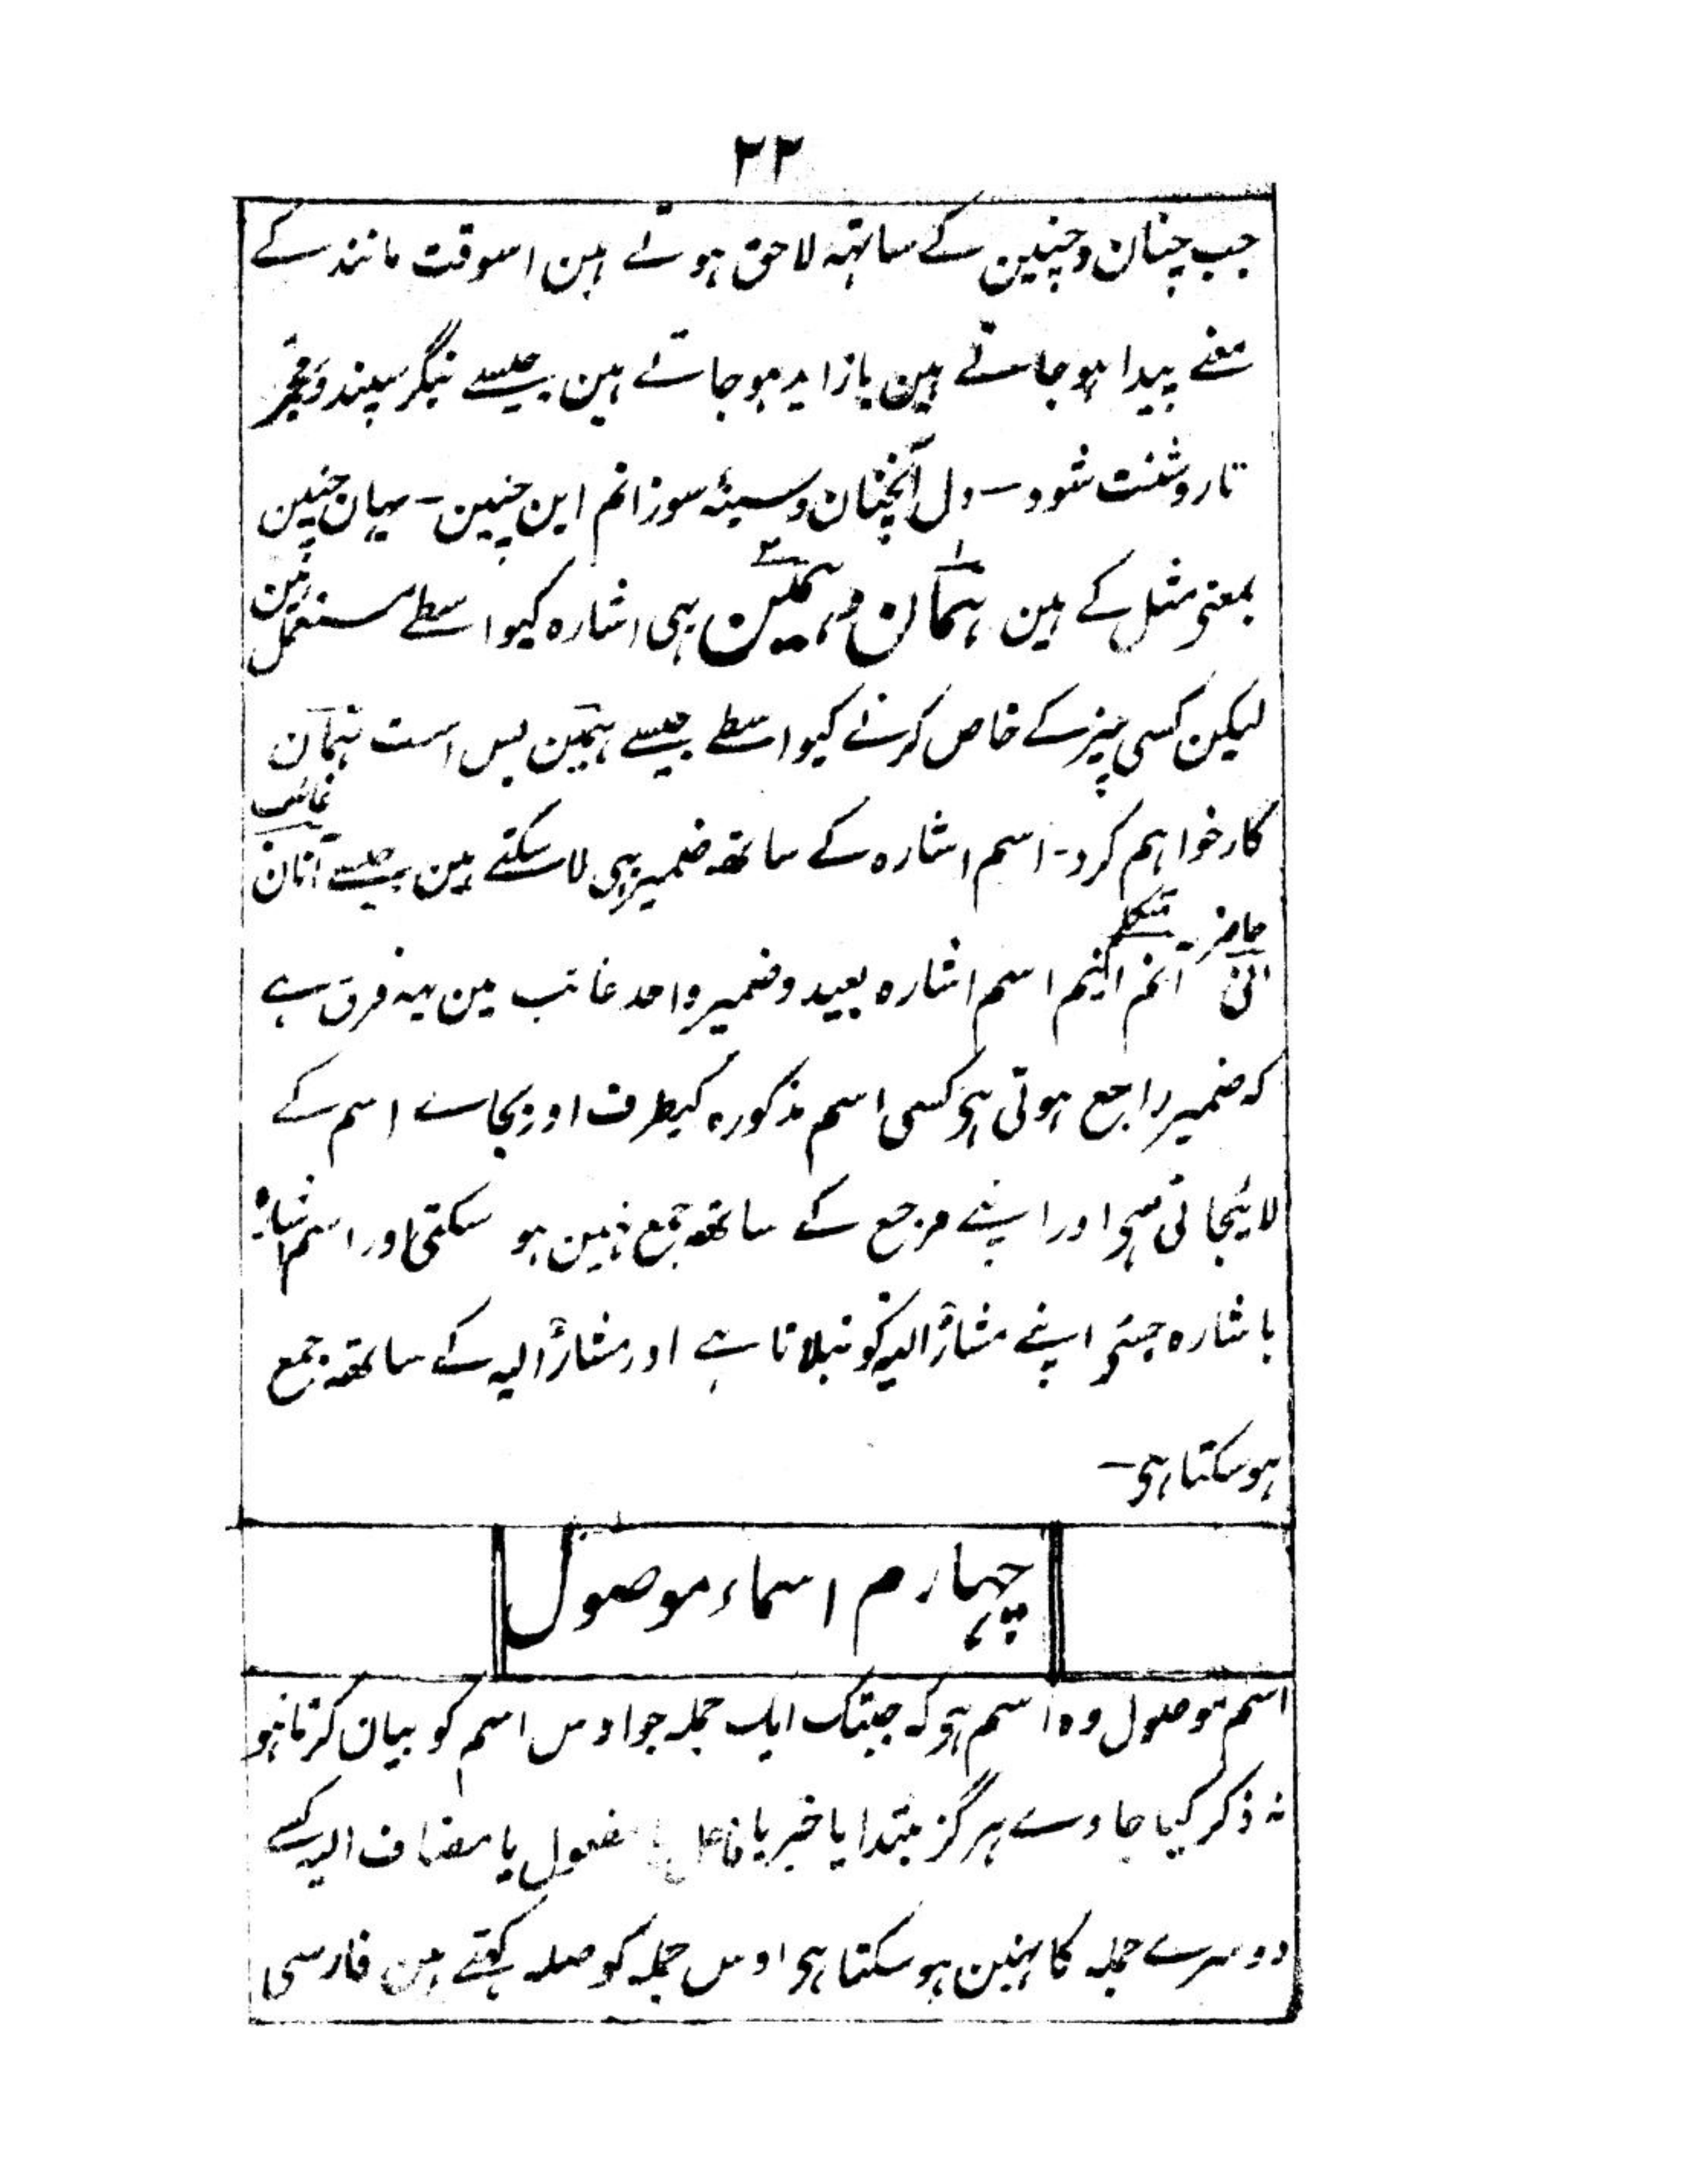 ۲۲
جب چنان وچنین کے ساتہہ لاحق ہوتے ہین اسوقت مانند کے
معنے پیدا ہو جاتے ہین یا زاید ہو جاتے ہین جیسے بنگر سپند ومجمر
تا روشنت شود - دل آنچنان وسینۂ سوزانم این چنین - یہان چنین
بمعنی مثل کے ہین ہمان وہمین بہی اشارہ کیواسطے مستعمل ہین
لیکن کسی چیز کے خاص کرنے کیواسطے جیسے ہمین بس است ہمان
کار خواہم کرد - اسم اشارہ کے ساتھہ ضمیر بہی لا سکتے ہین جیسے آنان غائب
حاضر متکلم آنم اینم اسم اشارہ بعید وضمیر واحد غائب مین یہہ فرق ہے
کہ ضمیر راجع ہوتی ہی کسی اسم مذکورہ کیطرف اور بجاے اسم کے
لائیجاتی ہی اور اپنے مرجع کے ساتھہ جمع نہین ہو سکتی اور اسم اشارہ
باشارہ حسّی اپنے مشارٌ الیہ کو بتلاتا ہے اور مشارٌ الیہ کے ساتھہ جمع
ہو سکتا ہی -
چہارم اسماء موصول
اسم موصول وہ اسم ہی کہ جبتک ایک جملہ جو اوس اسم کو بیان کرتا ہو
نہ ذکر کیا جاوے ہرگز مبتدا یا خبر یا فاعل یا مفعول یا مضاف الیہ کسی
دوسرے جملہ کا نہین ہو سکتا ہی اوس جملہ کو صلہ کہتے ہین فارسی